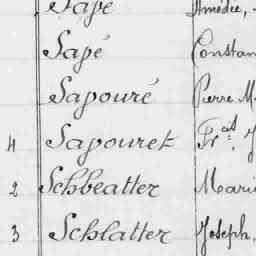 Sapé Amédée,
Sapé Constan
Sapouré Pierre M
4 Sapouret Fçois J
2 Schbeatter Marie
3 Schlatter Joseph,